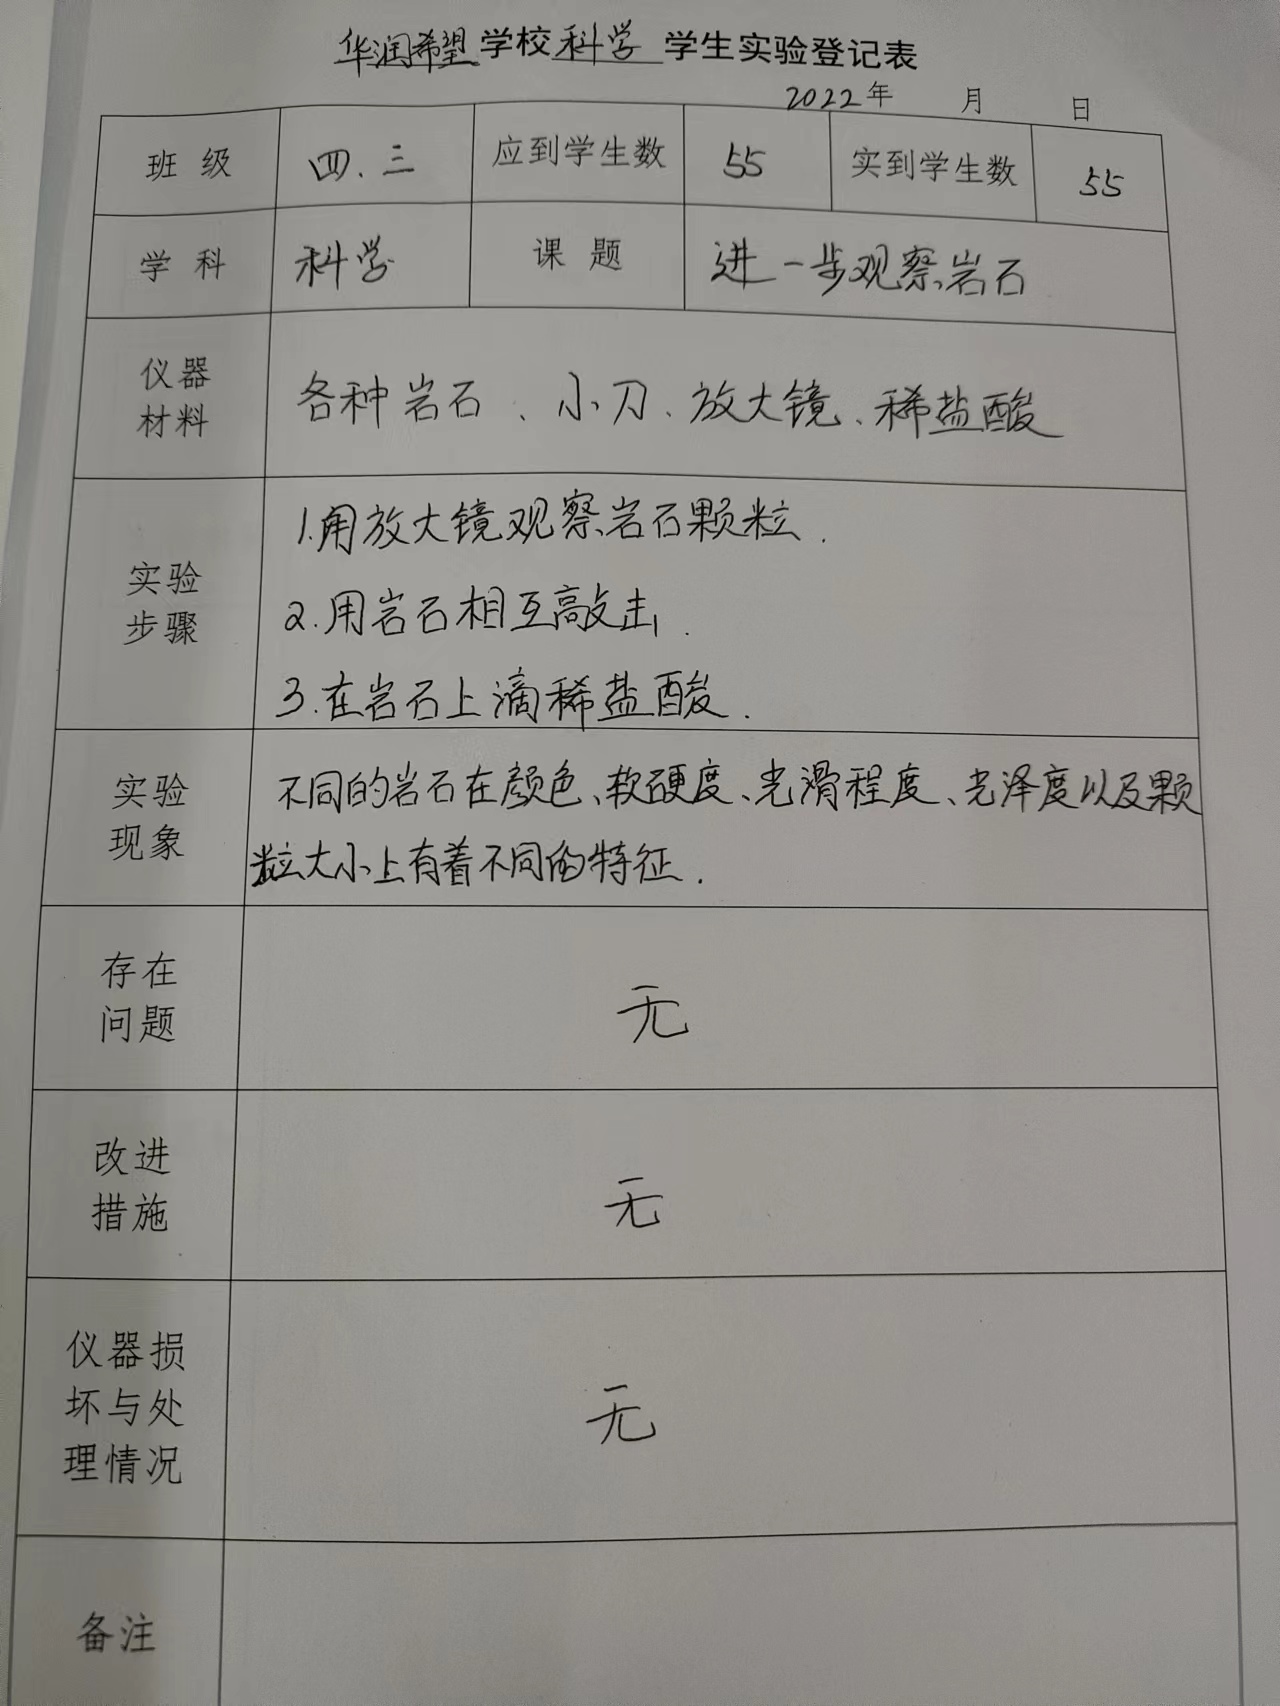 华润希望学校科学学生实验登记表
2022年 月 日
班级 四.三 应到学生数 55 实到学生数 55
学科 科学 课题 进一步观察岩石
仪器
材料
各种岩石、小刀、放大镜、稀盐酸
实验
步骤
1.用放大镜观察岩石颗粒.
2.用岩石相互敲击.
3.在岩石上滴稀盐酸.
实验
现象
不同的岩石在颜色、软硬度、光滑程度、光泽度以及颗
粒大小上有着不同的特征.
存在
问题
无
改进
措施
无
仪器损
坏与处
理情况
无
备注